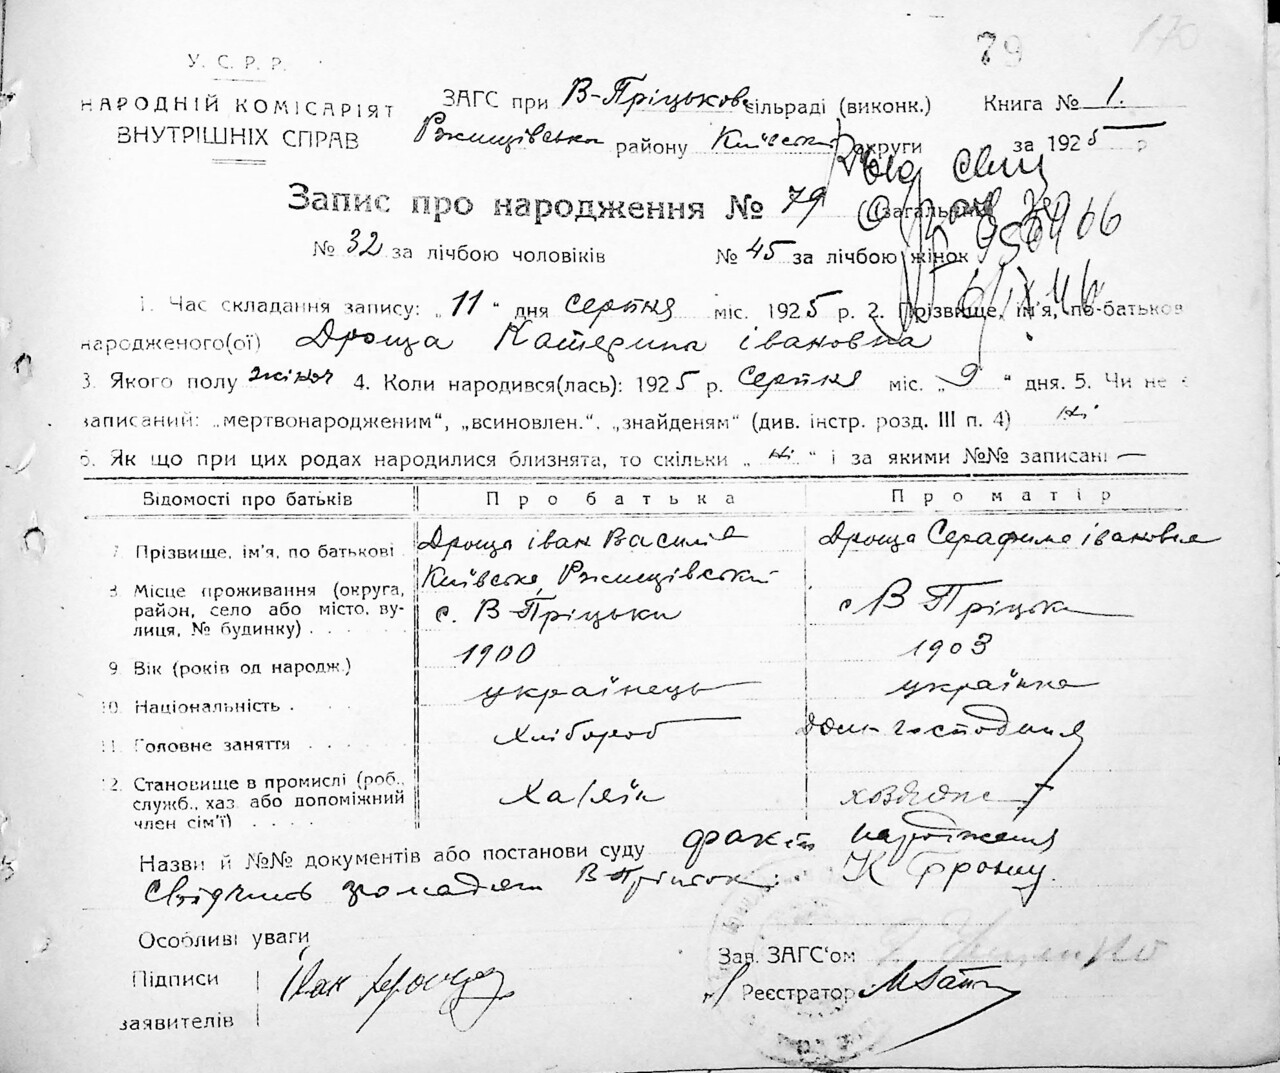 79 170
У. С. Р. Р.
НАРОДНІЙ КОМІСАРІЯТ
ВНУТРІШНІХ СПРАВ
ЗАГС при В-Пріцьков сільраді (виконк.) Книга № 1.
Ржищівськи району Київської округи за 1925 р
Запис про народження № 79 (загальний
№ 32 за лічбою чоловіків № 45 за лічбою жінок
1. Час складання запису: „11" дня серпня міс. 1925 р. 2. Прізвище, ім'я, по-батькові
народженого(ої) Дроща Катерина івановна
3. Якого полу жіноч 4. Коли народився(лась): 1925 р. серпня міс. „9" дня. 5. Чи не є
записаний: „мертвонародженим", „всиновлен.", „знайденям" (див. інстр. розд. III п. 4) ні
6. Як що при цих родах народилися близнята, то скільки „ ні " і за якими №№ записані —
Відомості про батьків Про батька Про матір
7. Прізвище, ім'я, по батькові Дроща іван Василів Дроща Серафима івановна
8. Місце проживання (округа, район, село або місто, вулиця, № будинку) Київське, Ржищівський
с. В Пріцьки с В Пріцьки
9. Вік (років од народж.) 1900 1903
10. Національність українець українка
11. Головне заняття хлібороб дом-господиня
12. Становище в промислі (роб., служб., хаз. або допоміжний член сім'ї)
Назви й №№ документів або постанови суду факт народження
свідчить громадян В-Пріцьки К
Особливі уваги
Підписи
заявителів Іван Дроща
Зав. ЗАГС'ом
Реєстратор